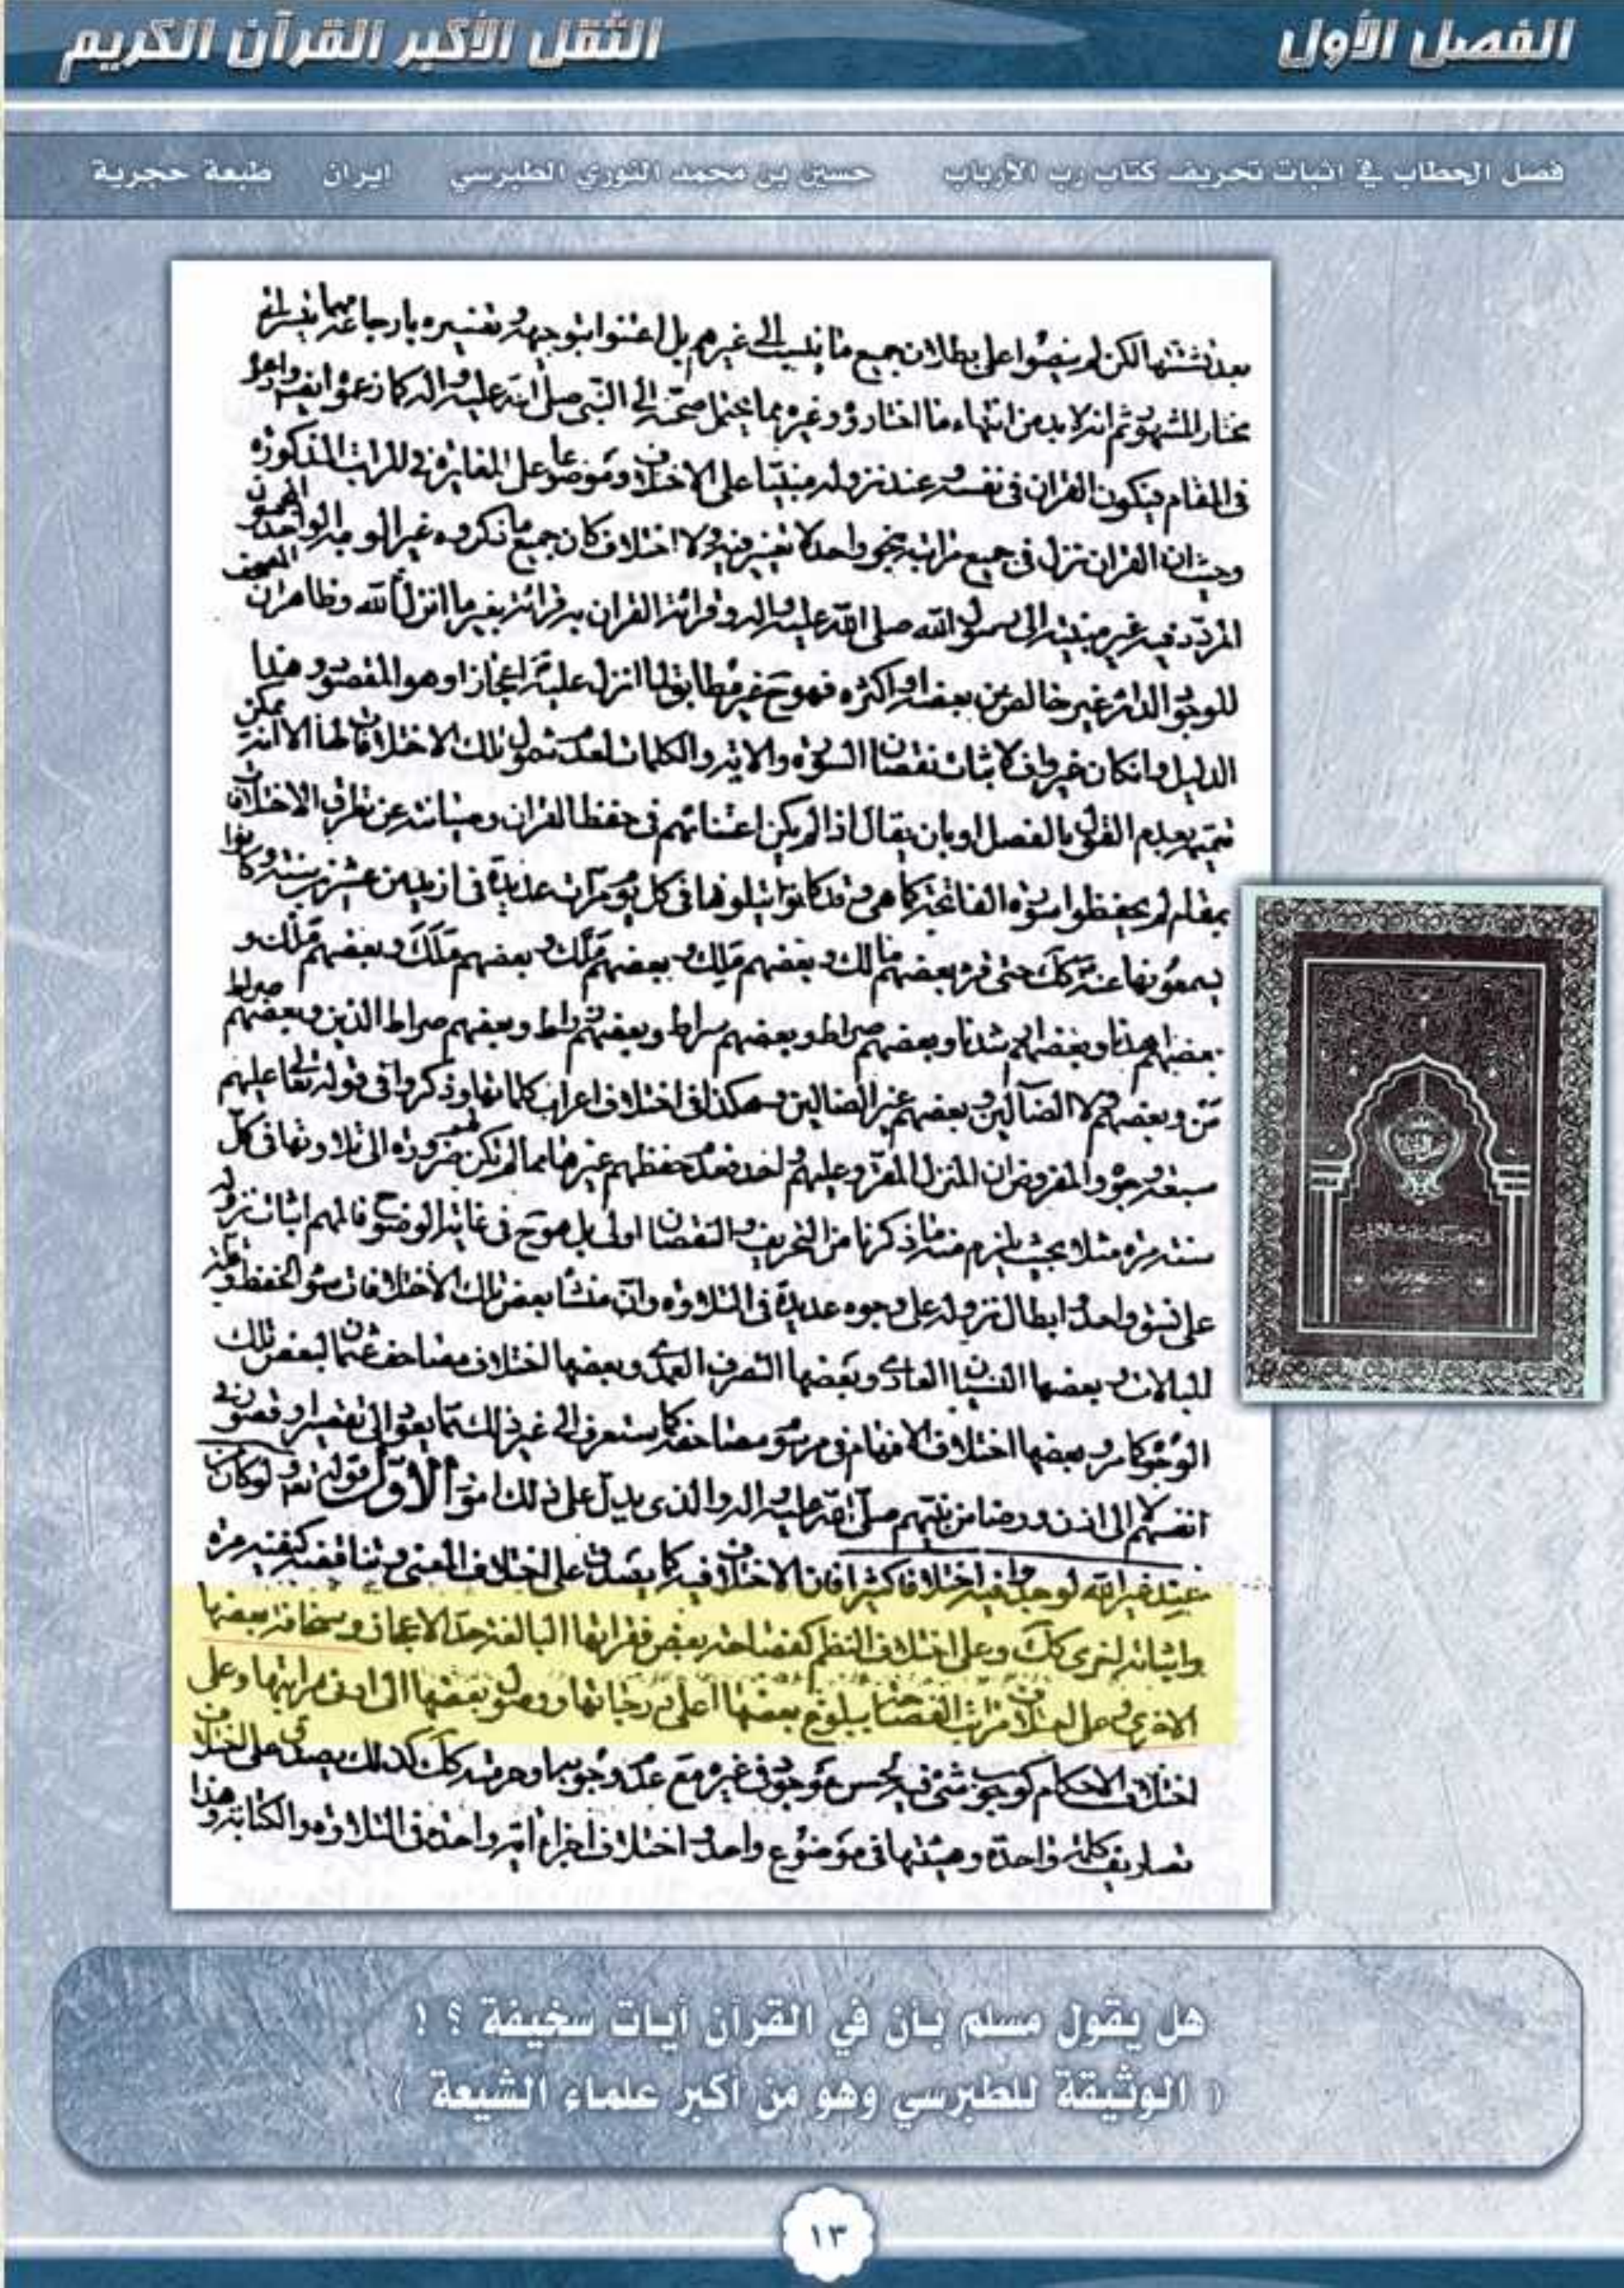 الفصل الأول
الثقل الأكبر القرآن الكريم
فصل الخطاب في اثبات تحريف كتاب رب الأرباب حسين بن محمد النوري الطبرسي ايران طبعة حجرية
بعد تشتتها لكن لم ينصوا على بطلان جميع ما ينسب الى غيرهم بل اعتنوا بتوجيهه وتفسيره
مختار المشهور ثم انه لا بد من انتهاء ما اختاروه وغيره مما يحتمل صحته الى النبي صلى الله عليه واله كما زعموا
فى المقام فيكون القران فى نفسه وعند نزوله مبنيا على الاختلاف وموضوعا على المغايرة فى المراتب المذكورة
وحيث ان القران نزل فى جميع مراتبه بنحو واحد لا تغيير فيه ولا اختلاف كان جميع ما ذكروه غير الوجه الواحد
المردد فيه غير منتهية الى رسول الله صلى الله عليه واله وقرائة القران به قرائة بغير ما انزل الله وظاهر ان
للوجوه الدائر غير خالص عن بعضه او اكثره فهو ح غير مطابق لما انزل عليه ص اعجازا وهو المقصود وهذا
الدليل وان كان غير واف لاثبات نقصان السورة والاية والكلمات لعدم شمول تلك الاختلافات لها الا انه يمكن
تتميمه بعدم القول بالفصل او بان يقال اذا لم يكن اعتنائهم فى حفظ القران وصيانته عن تطرق الاختلاف
بمقام لم يحفظوا سورة الفاتحة كما هى وقد كانوا يتلونها فى كل يوم مرات عديدة فى ازيد من عشرين سنة وكانوا
يسمعونها عنه ص كك حتى قرء بعضهم مالك وبعضهم ملك وبعضهم ملك وبعضهم ملك وبعضهم ملك و
بعضهم اهدنا وبعضهم ارشدنا وبعضهم صراط وبعضهم سراط وبعضهم زراط وبعضهم صراط الذين وبعضهم صراط
من وبعضهم ولا الضالين وبعضهم غير الضالين وهكذا فى اختلاف اعراب كلماتها وذكروا فى قوله تعالى عليهم
سبعة وجوه والمفروض ان المنزل المقرو عليهم واحد فعدم حفظهم غيرها مما لم تكن ضرورة الى تلاوتها فى كل
سنة مرة مثلا بحيث يلزم منه ما ذكرنا من التحريف والنقصان اولى بل هو ح فى غاية الوضوح فالمهم اثبات نزوله
على نسق واحد وابطال نزوله على وجوه عديدة فى التلاوة وان منشأ بعض تلك الاختلافات سوء الحفظ وقلة
المبالات وبعضها النسيان العادى وبعضها التصرف العمدى وبعضها اختلاف مصاحف عثمان لبعض تلك
الوجوه كما مر وبعضها اختلاف الافهام فى مرسوم مصاحفه كما ستعرف الى غير ذلك مما يعود الى تقصير او قصور فى
انفسهم لا الى اذن ورضا من نبيهم صلى الله عليه واله والذى يدل على ذلك امور الاول قوله تعالى ولو كان من
عند غير الله لوجدوا فيه اختلافا كثيرا فان الاختلاف فيه كما يصدق على اختلاف المعنى وتناقضه كنفيه مرة
واثباته اخرى كك وعلى اختلاف النظم كفصاحة بعض فقراتها البالغة حد الاعجاز وسخافة بعضها
الاخرى وعلى اختلاف مراتب الفصاحة ببلوغ بعضها اعلى درجاتها ووصول بعضها الى ادنى مراتبها وعلى
اختلاف الاحكام كوجوب شىء فيه لحسن موجود فى غيره مع عدم وجوبه او حرمته كك كذلك يصدق على اختلاف
تصاريف كلمة واحدة وهيئتها فى موضوع واحد واختلاف اجزاء اية واحدة فى التلاوة والكتابة وهذا
هل يقول مسلم بأن في القرآن آيات سخيفة ؟ !
( الوثيقة للطبرسي وهو من أكبر علماء الشيعة )
١٣